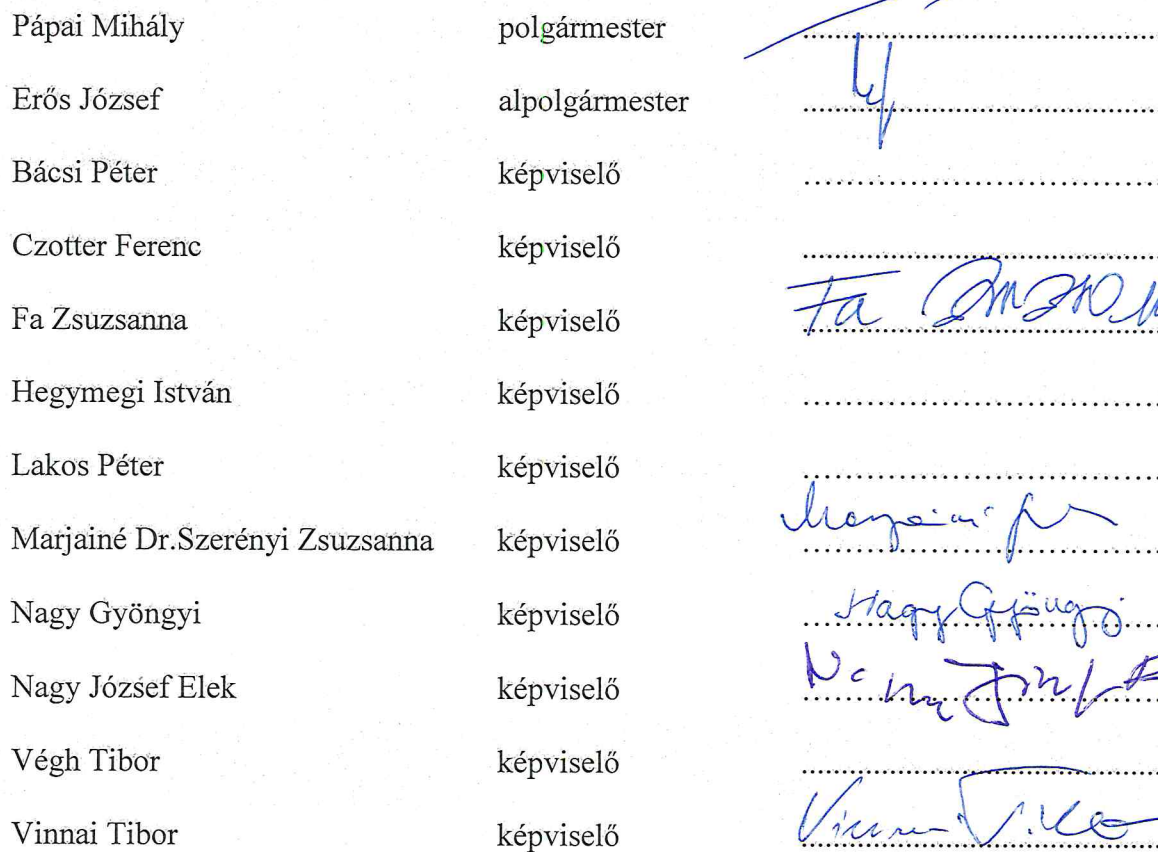 Pápai Mihály polgármester ........................
Erős József alpolgármester ........................
Bácsi Péter képviselő ........................
Czotter Ferenc képviselő ........................
Fa Zsuzsanna képviselő Fa
Hegymegi István képviselő ........................
Lakos Péter képviselő ........................
Marjainé Dr.Szerényi Zsuzsanna képviselő
Nagy Gyöngyi képviselő Nagy Gyöngyi
Nagy József Elek képviselő
Végh Tibor képviselő ........................
Vinnai Tibor képviselő